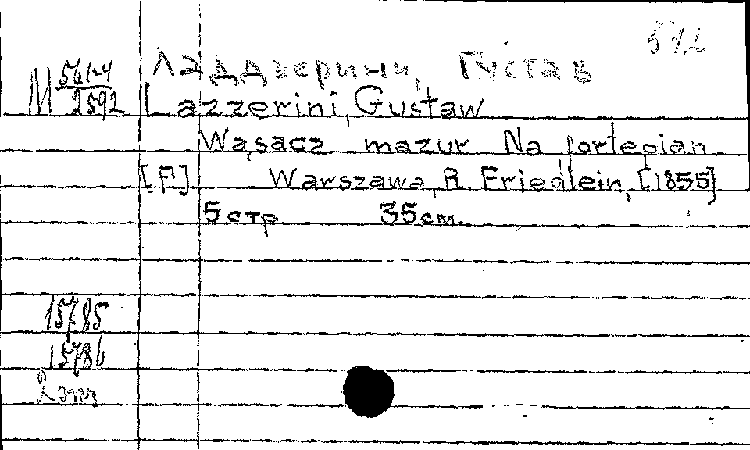 Ладдзерини, Густав
Lazzerini, Gustaw
Wąsacz mazur Na fortepian
[F] Warszawa, R. Friedlein, [1855]
5 стр 35 см.
15785
15786
2 экз